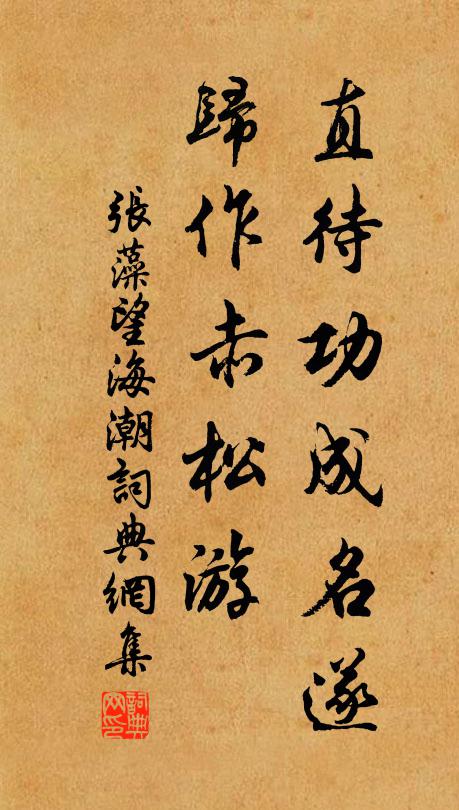 直待功成名遂
歸作赤松游
張藻望海潮詞典網集
詞典网印